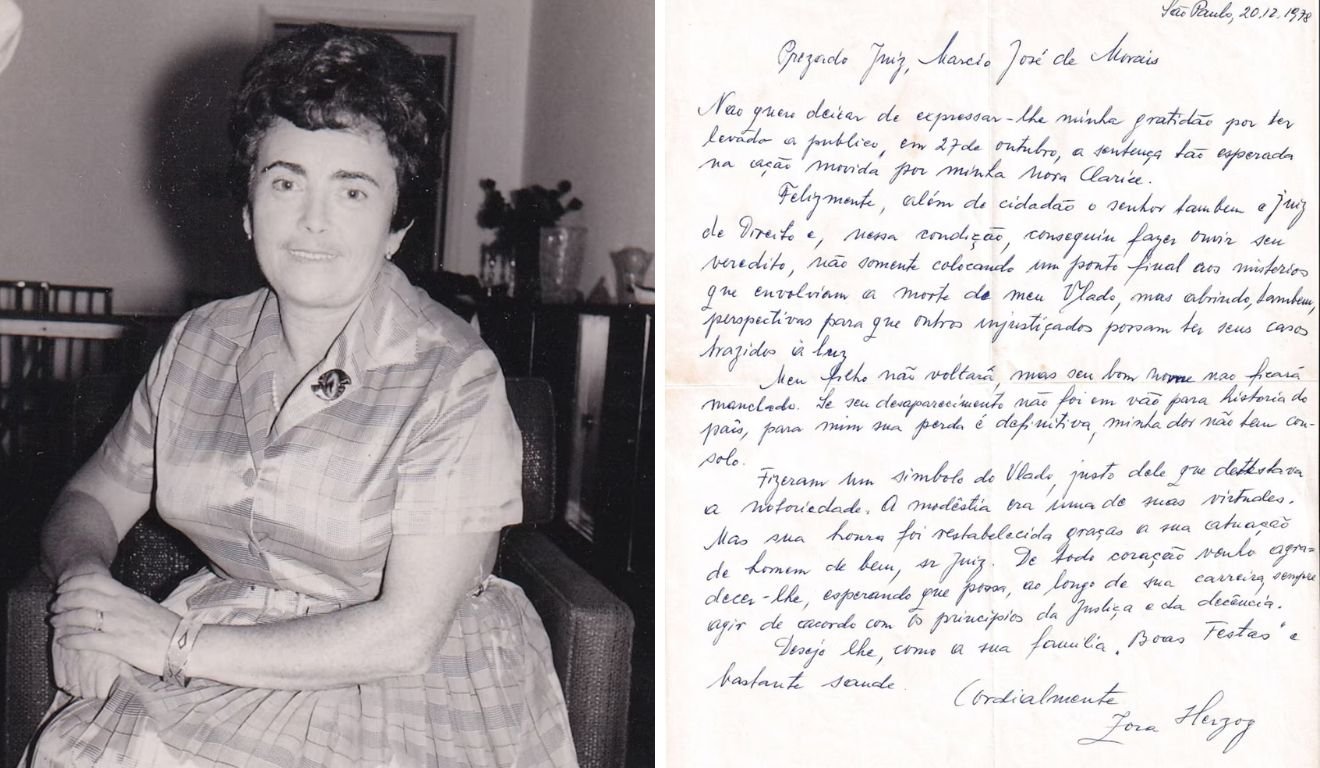 São Paulo, 20.12.1978
Prezado Juiz, Marcio José de Morais
Nao quero deixar de expressar-lhe minha gratidão por ter
levado a publico, em 27 de outubro, a sentença tão esperada
na ação movida por minha nora Clarice.
Felizmente, além de cidadão o senhor tambem e juiz
de Direito e, nessa condição, conseguiu fazer ouvir seu
veredito, não somente colocando um ponto final aos misterios
que envolviam a morte de meu Vlado, mas abrindo, tambem,
perspectivas para que outros injustiçados possam ter seus casos
trazidos à luz
Meu filho não voltará, mas seu bom nome nao ficará
manchado. Se seu desaparecimento não foi em vão para historia do
país, para mim sua perda é definitiva, minha dor não tem con-
solo.
Fizeram um simbolo do Vlado, justo dele que detestava
a notoriedade. A modêstia era uma de suas virtudes.
Mas sua honra foi restabelecida graças a sua atuação
de homem de bem, sr Juiz. De todo coração venho agra=
decer-lhe, esperando que possa, ao longo de sua carreira, sempre
agir de acordo com os principios da Justiça e da decência.
Desejo lhe, como a sua familia „Boas Festas" e
bastante saude.
Cordialmente
Zora Herzog